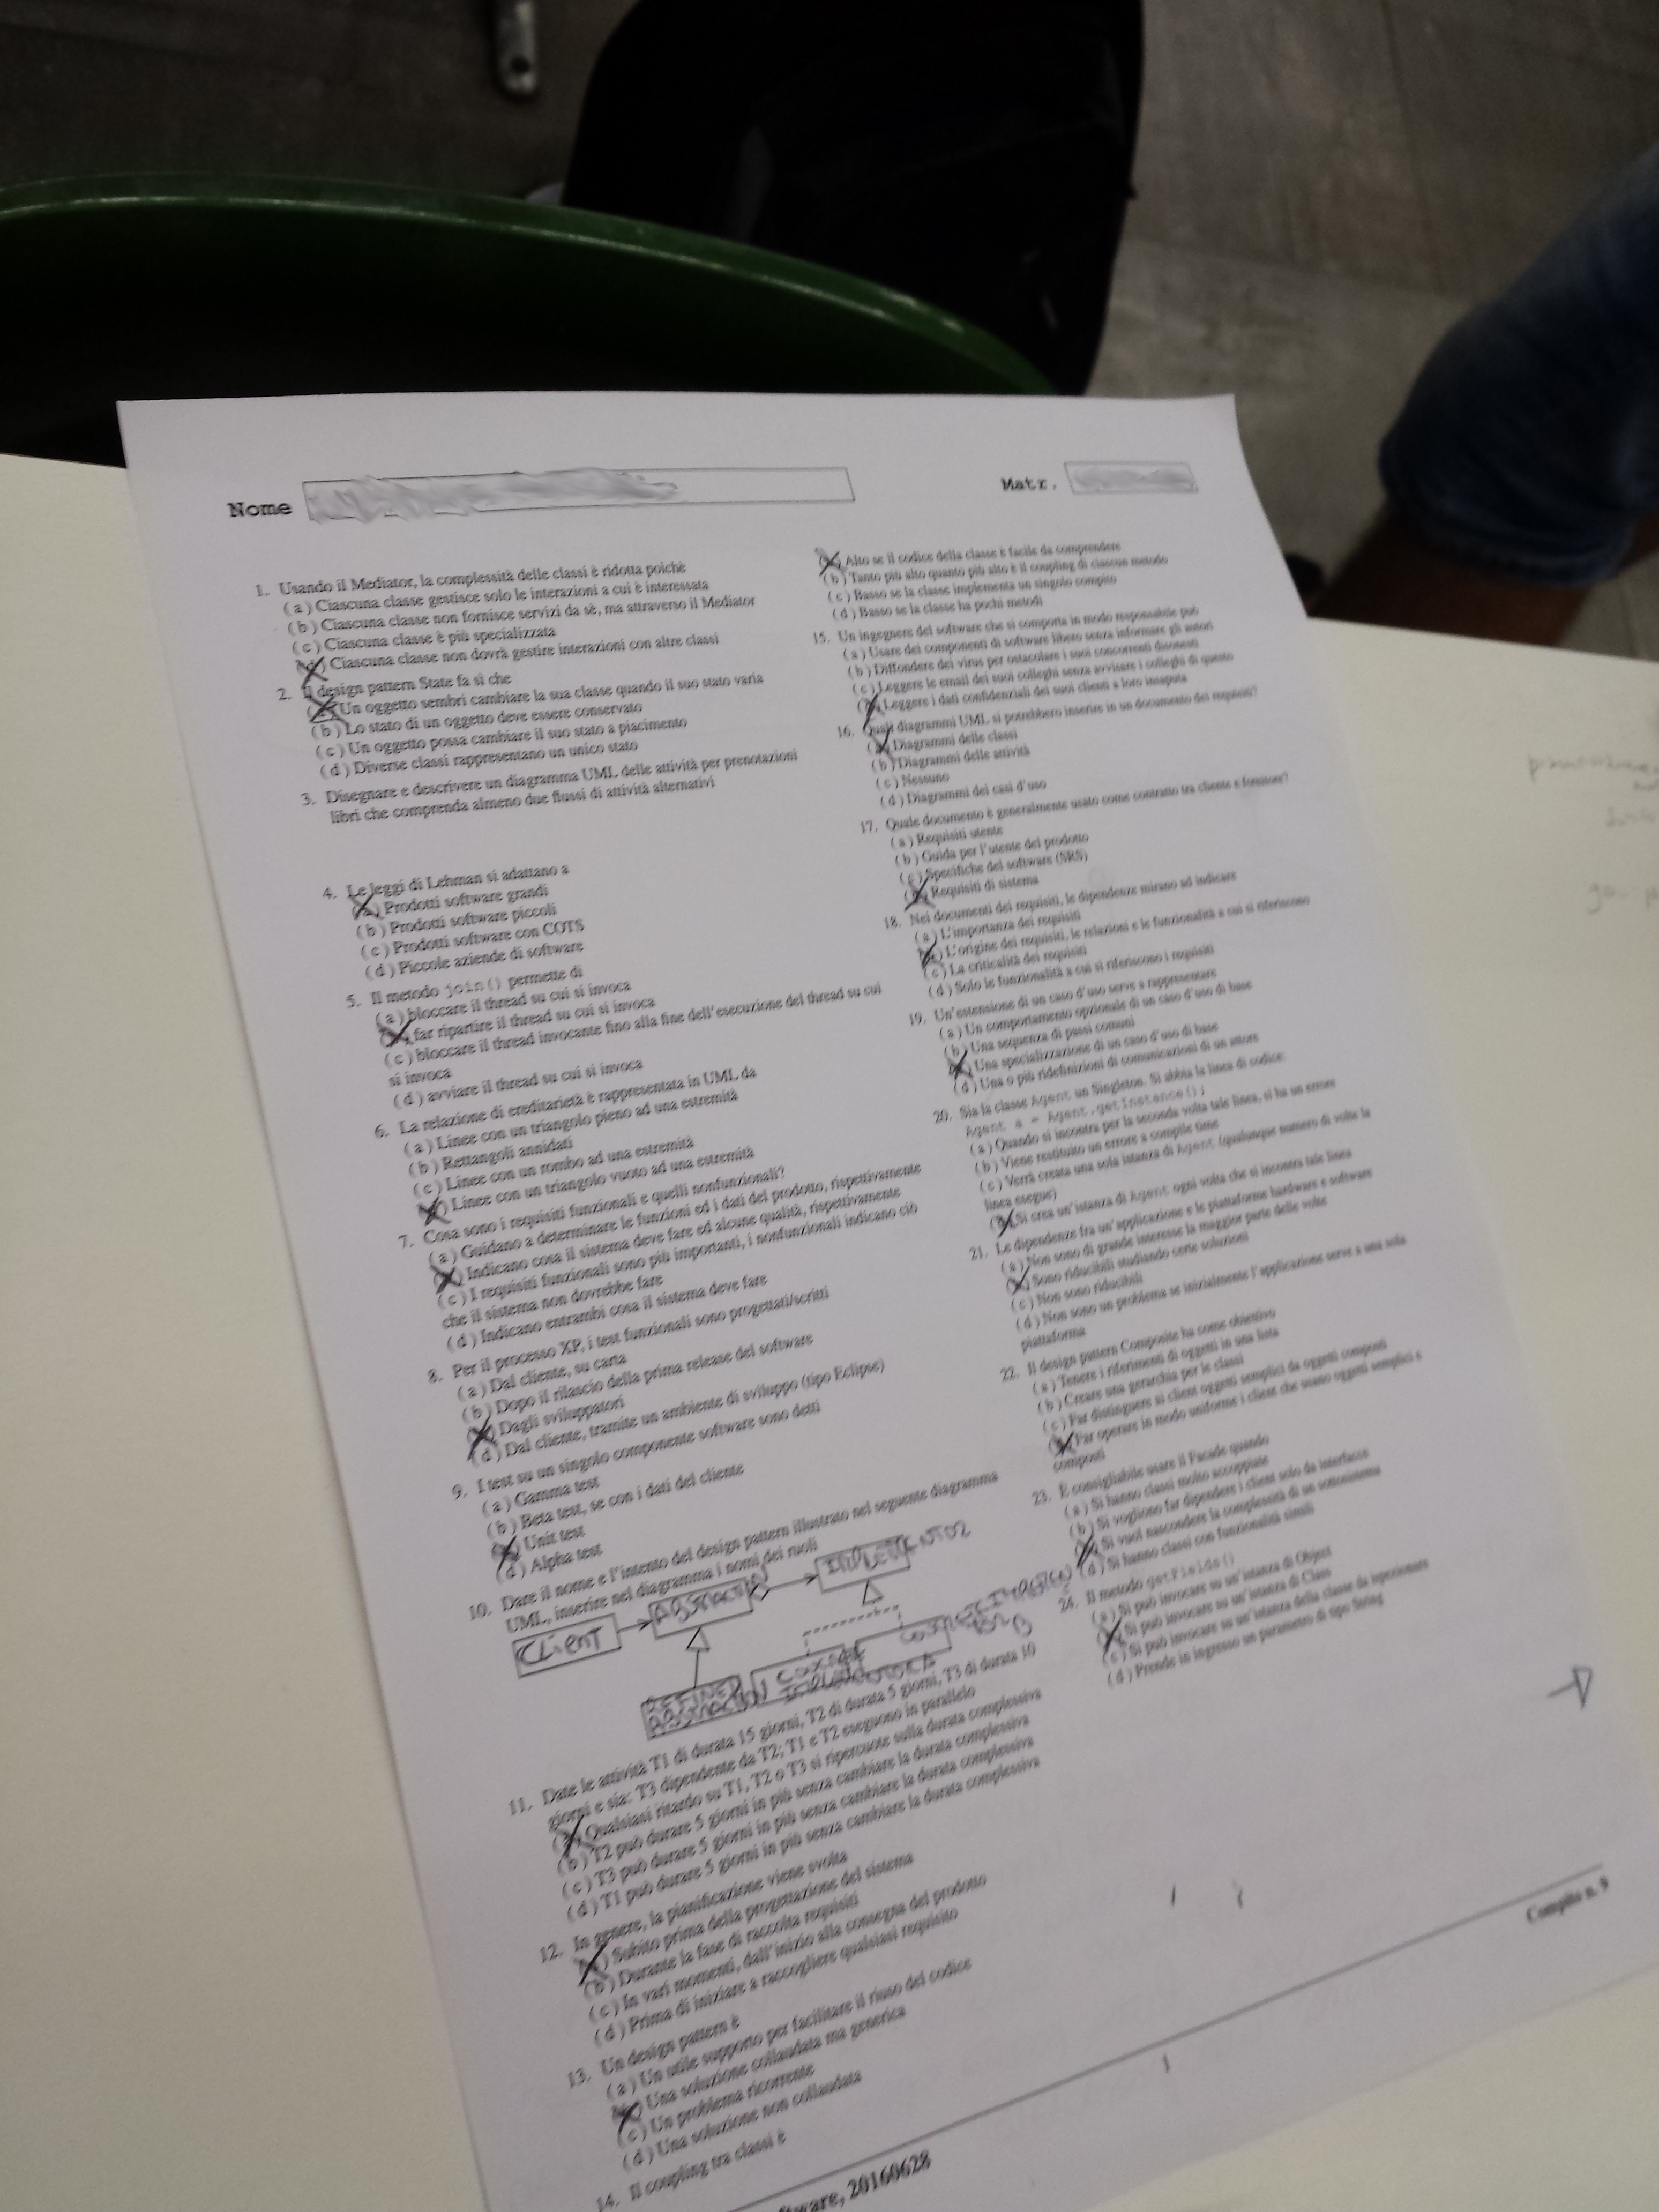 Nome
Matr.
1. Usando il Mediator, la complessità delle classi è ridotta poichè
(a) Ciascuna classe gestisce solo le interazioni a cui è interessata
(b) Ciascuna classe non fornisce servizi da sè, ma attraverso il Mediator
(c) Ciascuna classe è più specializzata
(d) Ciascuna classe non dovrà gestire interazioni con altre classi
2. Il design pattern State fa sì che
(a) Un oggetto sembri cambiare la sua classe quando il suo stato varia
(b) Lo stato di un oggetto deve essere conservato
(c) Un oggetto possa cambiare il suo stato a piacimento
(d) Diverse classi rappresentano un unico stato
3. Disegnare e descrivere un diagramma UML delle attività per prenotazioni
libri che comprenda almeno due flussi di attività alternativi
4. Le leggi di Lehman si adattano a
(a) Prodotti software grandi
(b) Prodotti software piccoli
(c) Prodotti software con COTS
(d) Piccole aziende di software
5. Il metodo join() permette di
(a) bloccare il thread su cui si invoca
(b) far ripartire il thread su cui si invoca
(c) bloccare il thread invocante fino alla fine dell'esecuzione del thread su cui
si invoca
(d) avviare il thread su cui si invoca
6. La relazione di ereditarietà è rappresentata in UML da
(a) Linee con un triangolo pieno ad una estremità
(b) Rettangoli annidati
(c) Linee con un rombo ad una estremità
(d) Linee con un triangolo vuoto ad una estremità
7. Cosa sono i requisiti funzionali e quelli nonfunzionali?
(a) Guidano a determinare le funzioni ed i dati del prodotto, rispettivamente
(b) Indicano cosa il sistema deve fare ed alcune qualità, rispettivamente
(c) I requisiti funzionali sono più importanti, i nonfunzionali indicano ciò
che il sistema non dovrebbe fare
(d) Indicano entrambi cosa il sistema deve fare
8. Per il processo XP, i test funzionali sono progettati/scritti
(a) Dal cliente, su carta
(b) Dopo il rilascio della prima release del software
(c) Dagli sviluppatori
(d) Dal cliente, tramite un ambiente di sviluppo (tipo Eclipse)
9. I test su un singolo componente software sono detti
(a) Gamma test
(b) Beta test, se con i dati del cliente
(c) Unit test
(d) Alpha test
10. Dare il nome e l'intento del design pattern illustrato nel seguente diagramma
UML, inserire nel diagramma i nomi dei ruoli
CLIENT
ABSTRACTION
REFINED
ABSTRACTION
11. Date le attività T1 di durata 15 giorni, T2 di durata 5 giorni, T3 di durata 10
giorni e sia: T3 dipendente da T2; T1 e T2 eseguono in parallelo
(a) Qualsiasi ritardo su T1, T2 o T3 si ripercuote sulla durata complessiva
(b) T2 può durare 5 giorni in più senza cambiare la durata complessiva
(c) T3 può durare 5 giorni in più senza cambiare la durata complessiva
(d) T1 può durare 5 giorni in più senza cambiare la durata complessiva
12. In genere, la pianificazione viene svolta
(a) Subito prima della progettazione del sistema
(b) Durante la fase di raccolta requisiti
(c) In vari momenti, dall'inizio alla consegna del prodotto
(d) Prima di iniziare a raccogliere qualsiasi requisito
13. Un design pattern è
(a) Un utile supporto per facilitare il riuso del codice
(b) Una soluzione collaudata ma generica
(c) Un problema ricorrente
(d) Una soluzione non collaudata
14. Il coupling tra classi è
(a) Alto se il codice della classe è facile da comprendere
(b) Tanto più alto quanto più alto è il coupling di ciascun metodo
(c) Basso se la classe implementa un singolo compito
(d) Basso se la classe ha pochi metodi
15. Un ingegnere del software che si comporta in modo responsabile può
(a) Usare dei componenti di software libero senza informare gli autori
(b) Diffondere dei virus per ostacolare i suoi concorrenti disonesti
(c) Leggere le email dei suoi colleghi senza avvisare i colleghi di questo
(d) Leggere i dati confidenziali dei suoi clienti a loro insaputa
16. Quali diagrammi UML si potrebbero inserire in un documento dei requisiti?
(a) Diagrammi delle classi
(b) Diagrammi delle attività
(c) Nessuno
(d) Diagrammi dei casi d'uso
17. Quale documento è generalmente usato come contratto tra cliente e fornitore?
(a) Requisiti utente
(b) Guida per l'utente del prodotto
(c) Specifiche del software (SRS)
(d) Requisiti di sistema
18. Nei documenti dei requisiti, le dipendenze mirano ad indicare
(a) L'importanza dei requisiti
(b) L'origine dei requisiti, le relazioni e le funzionalità a cui si riferiscono
(c) La criticalità dei requisiti
(d) Solo le funzionalità a cui si riferiscono i requisiti
19. Un'estensione di un caso d'uso serve a rappresentare
(a) Un comportamento opzionale di un caso d'uso di base
(b) Una sequenza di passi comuni
(c) Una specializzazione di un caso d'uso di base
(d) Una o più ridefinizioni di comunicazioni di un attore
20. Sia la classe Agent un Singleton. Si abbia la linea di codice:
Agent a = Agent.getInstance();
(a) Quando si incontra per la seconda volta tale linea, si ha un errore
(b) Viene restituito un errore a compile time
(c) Verrà creata una sola istanza di Agent (qualunque numero di volte la
linea esegue)
(d) Si crea un'istanza di Agent ogni volta che si incontra tale linea
21. Le dipendenze fra un'applicazione e le piattaforme hardware e software
(a) Non sono di grande interesse la maggior parte delle volte
(b) Sono riducibili studiando certe soluzioni
(c) Non sono riducibili
(d) Non sono un problema se inizialmente l'applicazione serve a una sola
piattaforma
22. Il design pattern Composite ha come obiettivo
(a) Tenere i riferimenti di oggetti in una lista
(b) Creare una gerarchia per le classi
(c) Far distinguere ai client oggetti semplici da oggetti composti
(d) Far operare in modo uniforme i client che usano oggetti semplici e
composti
23. È consigliabile usare il Facade quando
(a) Si hanno classi molto accoppiate
(b) Si vogliono far dipendere i client solo da interfacce
(c) Si vuol nascondere la complessità di un sottosistema
(d) Si hanno classi con funzionalità simili
24. Il metodo getFields()
(a) Si può invocare su un'istanza di Object
(b) Si può invocare su un'istanza di Class
(c) Si può invocare su un'istanza della classe da ispezionare
(d) Prende in ingresso un parametro di tipo String
20160628
1
Compito n. 9